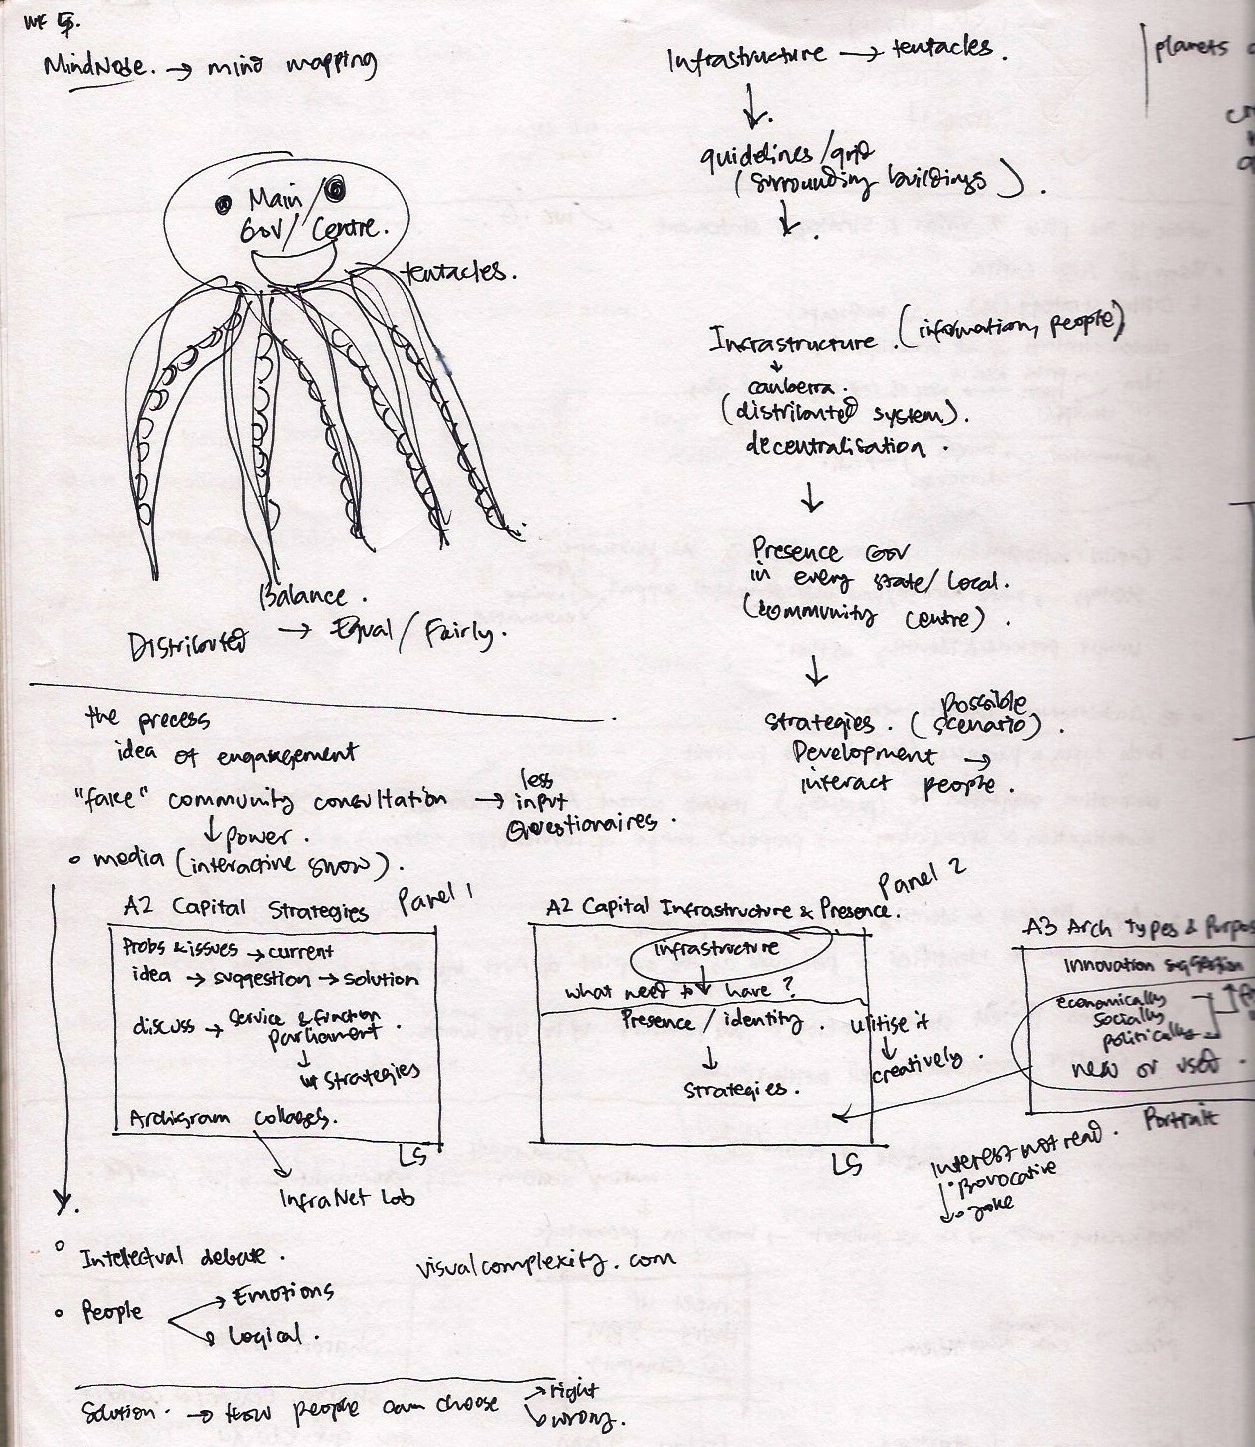 WK 5.
MindNode. → mind mapping
Main/
Gov/ Centre.
tentacles.
Balance.
Distributed → Equal / Fairly.
Infrastructure → tentacles.
guidelines/grid
(surrounding buildings).
Infrastructure. (information, people)
canberra.
(distributed system).
decentralisation.
Presence Gov
in every state/Local.
(community centre).
strategies. (possible scenario).
Development →
interact people.
planets
the process
idea of engagement
"fake" community consultation → less
input
Questionaires.
↓ power.
• media (interactive show).
A2 Capital Strategies Panel 1
Probs & issues → current
idea → suggestion → solution
discuss → service & function
parliament.
↓
strategies
Archigram collages.
LS
InfraNet Lab
A2 Capital Infrastructure & Presence. Panel 2
Infrastructure
what need to have?
Presence / identity.
↓
strategies.
LS
Utitise it
↓
creatively.
A3 Arch Types & Purpos
Innovation suggestion
economically
socially
politically
new or used.
Portrait
Interest not read.
• Provocative
• Joke
• Intellectual debate.
visualcomplexity.com
• People
Emotions
Logical.
Solution. → How people can choose
right
wrong.